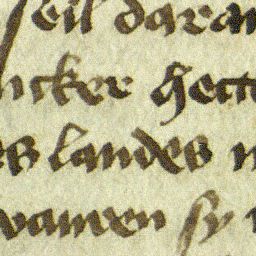 seil daran
icker hett
es landes
waren sy